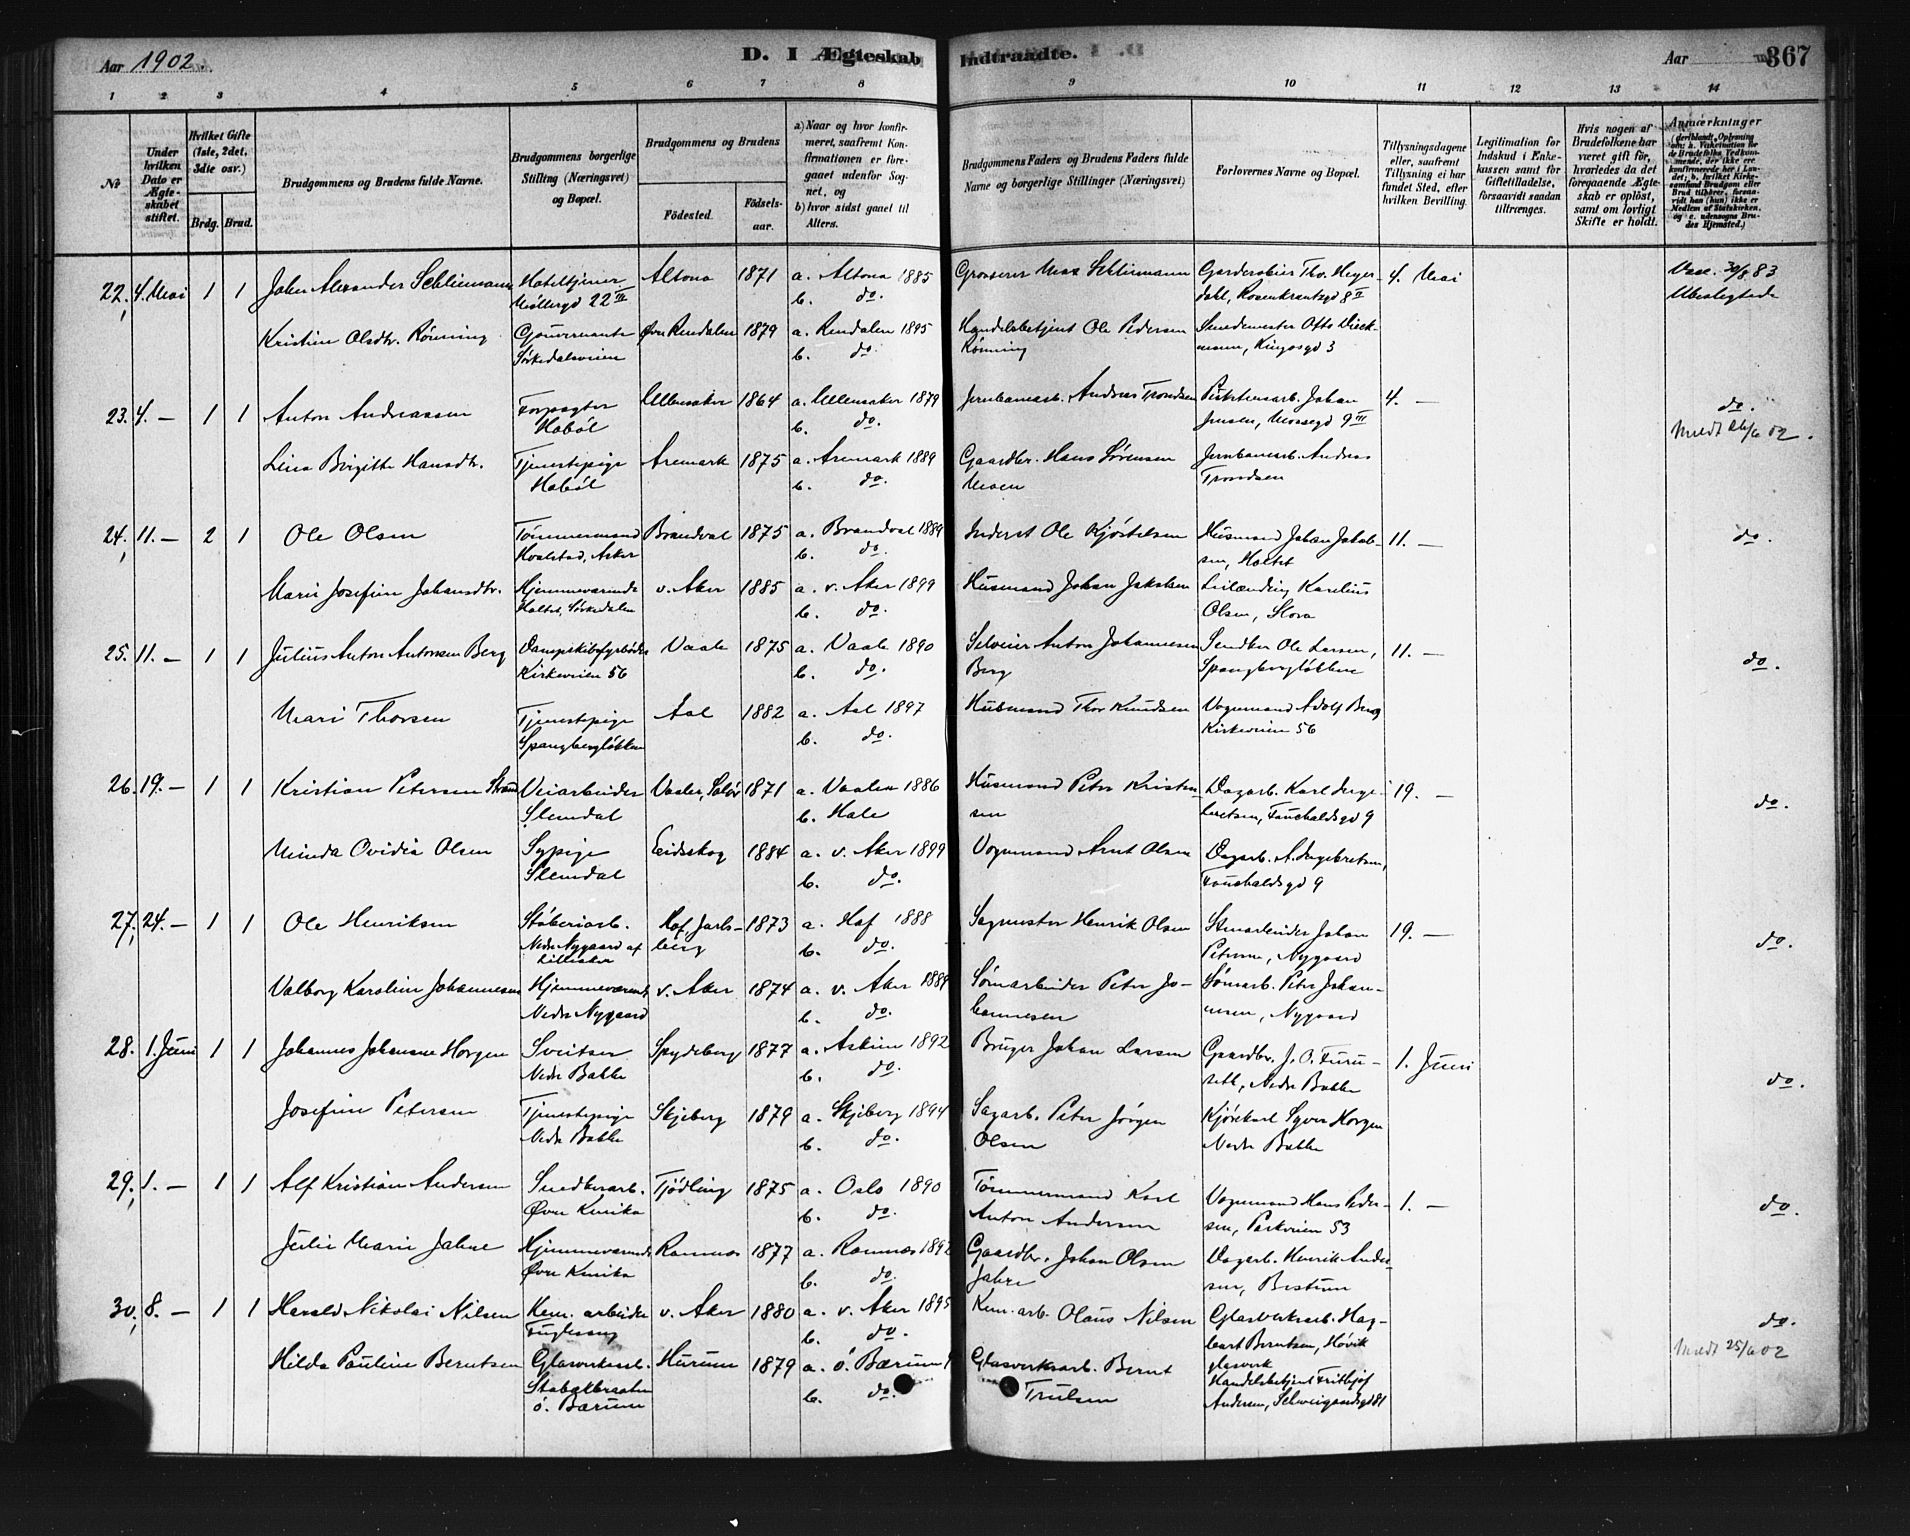 Aar 1902.
D. I Ægteskab Indtraadte.
Aar
367
1 2 3 4 5 6 7 8 9 10 11 12 13 14
No
Under hvilken Dato er Ægteskabet stiftet.
Hvilket Gifte (1ste, 2det, 3die osv.)
Brdg. Brud.
Brudgommens og Brudens fulde Navne.
Brudgommens borgerlige Stilling (Næringsvei) og Bopæl.
Brudgommens og Brudens
Födested.
Födselsaar.
a) Naar og hvor konfirmeret, saafremt Konfirmationen er foregaaet udenfor Sognet, og
b) hvor sidst gaaet til Alters.
Brudgommens Faders og Brudens Faders fulde Navne og borgerlige Stillinger (Næringsvei)
Forlovernes Navne og Bopæl.
Tillysningsdagene eller, saafremt Tillysning ei har fundet Sted, efter hvilken Bevilling.
Legitimation for Indskud i Enkekassen samt for Giftetilladelse, forsaavidt saadan tiltrænges.
Hvis nogen af Brudefolkene har været gift för, hvorledes da det foregaaende Ægteskab er oplöst, samt om lovligt Skifte er holdt.
Anmærkninger
22, 4. Mai 1 1 John Alexander Schliemann Hoteltjener Møllergd 22 III Altona 1871 a. Altona 1885 b. do. Grosserer Max Schliemann Garderobier Thv. Heyerdahl, Rosenkrantzgd 8 II 4. Mai Vacc. 30/8 83 Ubeslegtede
Kristine Olsdtr. Rönning Gouvernante Sörkedalsveien Øvre Rendalen 1879 a. Rendalen 1895 b. do. Handelsbetjent Ole Pedersen Rönning Smedemester Otto Dieckmann, Kingosgd 3
23. 4. — 1 1 Anton Andreassen Forpagter Haböl Ullensaker 1864 a. Ullensaker 1879 b. do. Jernbanearb. Andreas Trondsen Johan Jensen, Mossegd 9 III 4. — do. Meldt 26/6 02.
Lina Birgitte Hansdtr. Tjenestepige Haböl Aremark 1875 a. Aremark 1889 b. do. Gaardbr. Hans Sörensen Moen Jernbanearb. Andreas Trondsen
24, 11. — 2 1 Ole Olsen Tömmermand Hvalstad, Asker Brandval 1875 a. Brandval 1889 b. do. Inderst Ole Kjöstelsen Husmand Johan Jakobsen, Holtet 11. — do.
Marie Josefine Johansdtr. Hjemmeværende Holtet, Sörkedalen v. Aker 1885 a. v. Aker 1899 b. do. Husmand Johan Jakobsen Leilænding Karelius Olsen, Slora
25. 11. — 1 1 Julius Anton Antonsen Berg Dampskibsfyrböder Kirkeveien 56 Vaale 1875 a. Vaale 1890 b. do. Selveier Anton Johannesen Berg Snedker Ole Larsen, Spangberglökken 11. — do.
Mari Thorsen Tjenestepige Spangberglökken Aal 1882 a. Aal 1897 b. do. Husmand Thor Knudsen Vognmand Adolf Berg Kirkeveien 56
26. 19. — 1 1 Kristian Petersen Strand Veiarbeider Slemdal Vaaler, Solör 1871 a. Vaaler 1886 b. Hole Husmand Peter Kristensen Dagarb. Karl Ingebretsen, Fauchaldsgd 9 19. — do.
Minda Ovidia Olsen Sypige Slemdal Eidskog 1884 a. v. Aker 1899 b. do. Vognmand Arnt Olsen Dagarb. A. Ingebretsen, Fauchaldsgd 9
27, 24. — 1 1 Ole Henriksen Stöberiarb. Nedre Nygaard af Lilleaker Hof, Jarlsberg 1873 a. Hof 1888 b. do. Sagmester Henrik Olsen Stenarbeider Johan Petersen, Nygaard 19. — do.
Valborg Karoline Johannesen Hjemmeværende Nedre Nygaard v. Aker 1874 a. v. Aker 1889 b. do. Sömarbeider Peter Johannesen Sömarb. Peter Johannesen, Nygaard
28. 1. Juni 1 1 Johannes Johansen Horgen Sveitser Nedre Bakke Spydeberg 1877 a. Askim 1892 b. do. Bruger Johan Larsen Gaardbr. J. O. Furuseth, Nedre Bakke 1. Juni do.
Josefine Petersen Tjenestepige Nedre Bakke Skjeberg 1879 a. Skjeberg 1894 b. do. Sagarb. Peter Jörgen Olsen Kjörekarl Syver Horgen Nedre Bakke
29, 1. — 1 1 Alf Kristian Andersen Snedkerarb. Øvre Tjödling 1875 a. Oslo 1890 b. do. Tömmermand Karl Anton Andersen Vognmand Hans Pedersen, Parkveien 53 1. — do.
Julie Marie Jahre Hjemmeværende Øvre Ramnes 1877 a. Ramnes 1892 b. do. Gaardbr. Johan Olsen Jahre Dagarb. Henrik Andersen, Bestum
30, 8. — 1 1 Harald Nikolai Nilsen Kem. arbeider Fuglesang v. Aker 1880 a. v. Aker 1895 b. do. Kem. arb. Olaus Nilsen Glasverksarb. Hagbart Berntsen, Hövik glasverk do. Meldt 25/6 02
Hilda Pauline Berntsen Glasverksarb. Stabækbraaten ö. Bærum Hurum 1879 a. ö. Bærum b. do. Glasverksarb. Bernt Trulsen Handelsbetjent Fritbjof Andersen, Schweigaardsgd 81